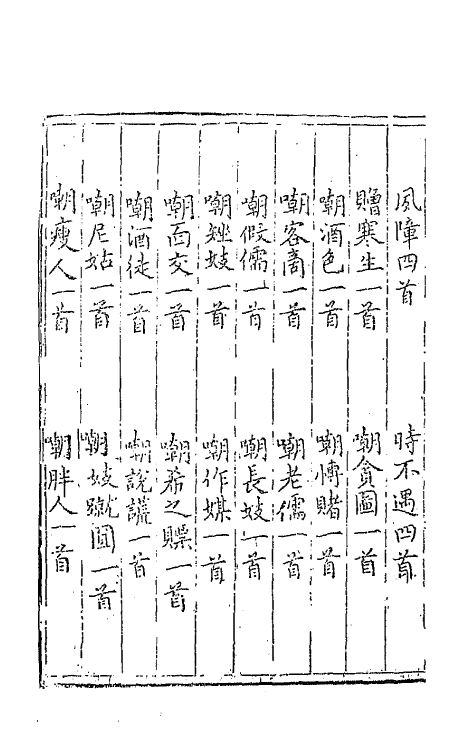 風障四首 時不遇四首
贈寒生一首 嘲貪圖一首
嘲酒色一首 嘲慱賭一首
嘲客啇一首 嘲老儒一首
嘲假儒一首 嘲長妓一首
嘲矬妓一首 嘲作媒一首
嘲面交一首 嘲希之驃一首
嘲酒徒一首 嘲說謊一首
嘲尼姑一首 嘲妓蹴圓一首
嘲瘦人一首 嘲胖人一首